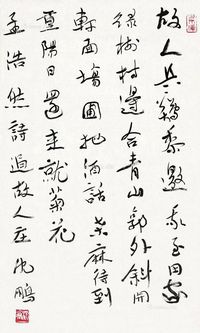 故人具鷄黍邀我至田家
綠樹村邊合青山郭外斜開
軒面場圃把酒話桑麻待到
重陽日還來就菊花
孟浩然詩過故人庄沈鵬